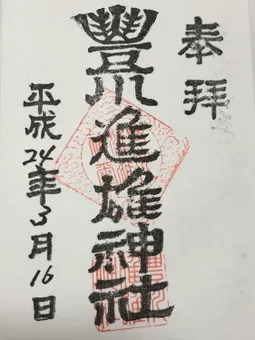 奉拝
豐川進雄神社
平成24年3月16日